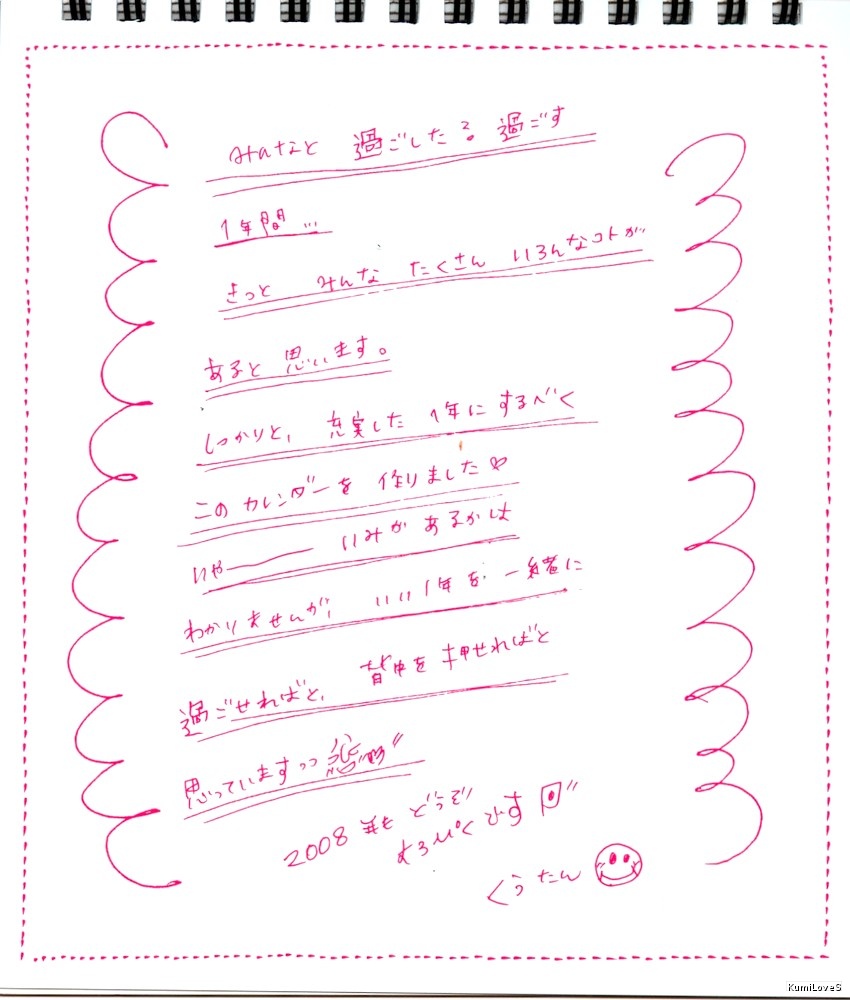 みなと 過ごした? 過ごす
1年間…
きっと みんな たくさん いろんなコトが
あると思います。
しっかりと、充実した 1年にするべく
このカレンダーを 作りました♡
いや―― いみが あるかは
わかりませんが、いい1年を、一緒に
過ごせればと、背中を押せればと
思っています
2008 年も どうぞ
よろぴく です
くぅたん
KumiLoveS